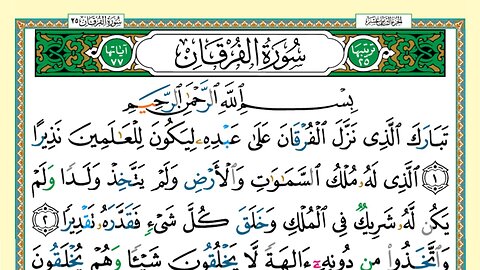 سُورَةُ الفُرْقَان ٢٥
ترتيبها ٢٥ سُورَةُ الفُرْقَان آياتها ٧٧
بِسْمِ اللَّهِ الرَّحْمَٰنِ الرَّحِيمِ
تَبَارَكَ الَّذِى نَزَّلَ الْفُرْقَانَ عَلَىٰ عَبْدِهِۦ لِيَكُونَ لِلْعَٰلَمِينَ نَذِيرًا
١ الَّذِى لَهُۥ مُلْكُ السَّمَٰوَٰتِ وَالْأَرْضِ وَلَمْ يَتَّخِذْ وَلَدًا وَلَمْ
يَكُن لَّهُۥ شَرِيكٌ فِى الْمُلْكِ وَخَلَقَ كُلَّ شَىْءٍ فَقَدَّرَهُۥ تَقْدِيرًا ٢
وَاتَّخَذُوا۟ مِن دُونِهِۦٓ ءَالِهَةً لَّا يَخْلُقُونَ شَيْـًٔا وَهُمْ يُخْلَقُونَ